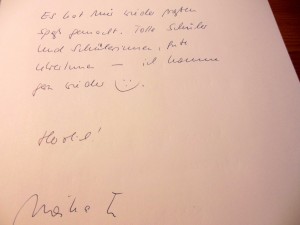 Es hat mir wieder großen
Spaß gemacht. Tolle Schüler
und Schülerinnen, gute
— ich komme
gern wieder ☺.
Herzlich!